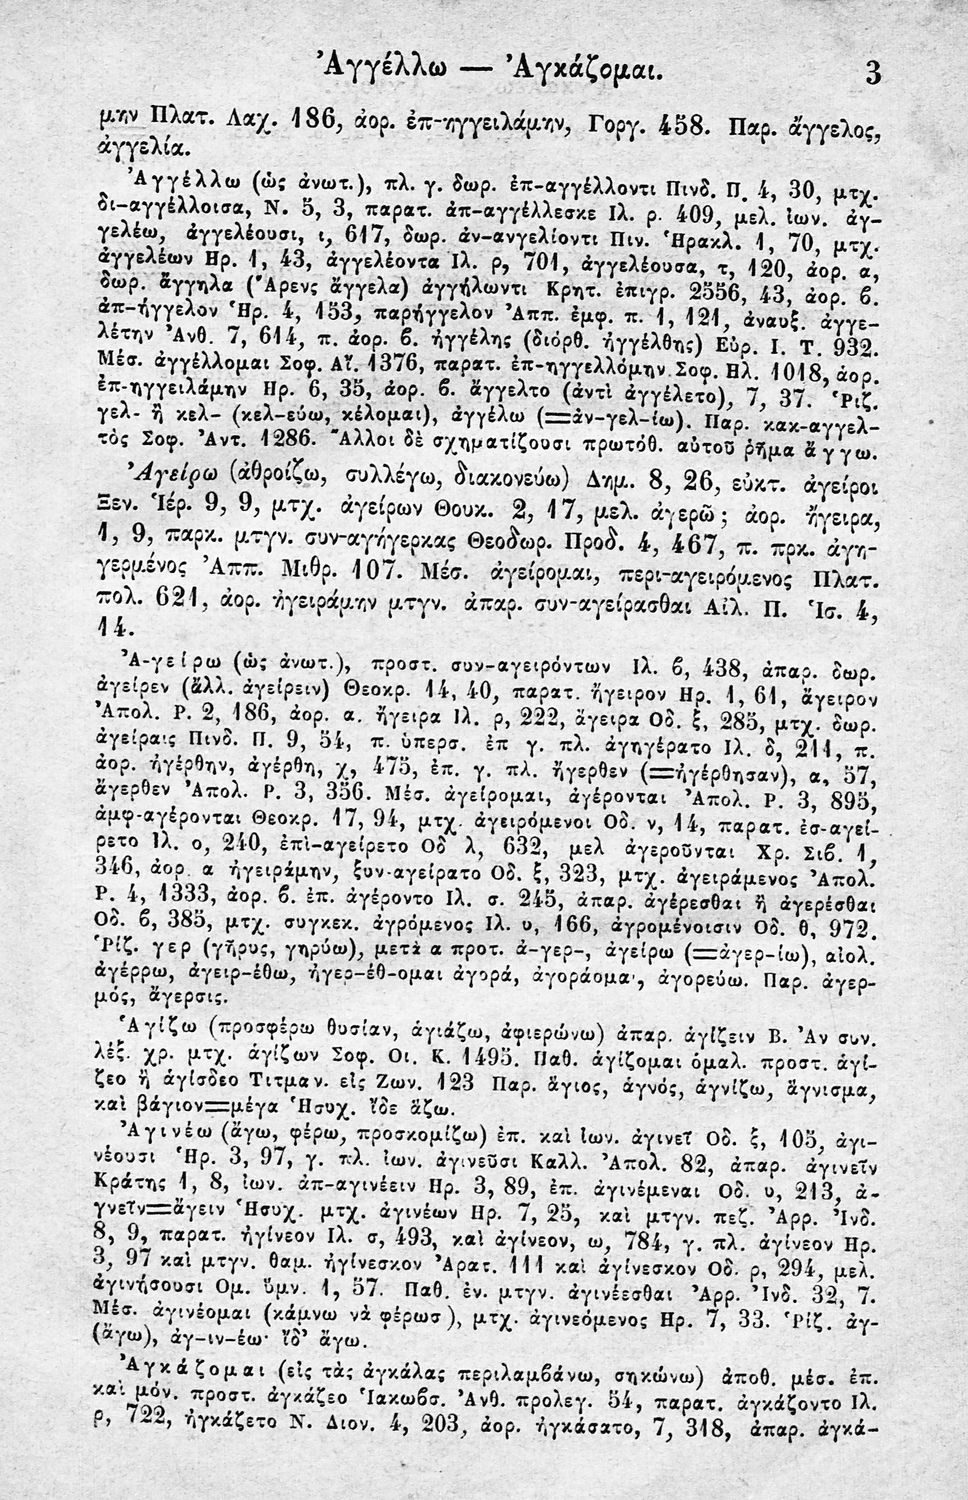 Ἀγγέλλω — Ἀγκάζομαι. 3
μην Πλατ. Λαχ. 186, ἀορ. ἐπ-ηγγειλάμην, Γοργ. 458. Παρ. ἄγγελος,
ἀγγελία.
Ἀγγέλλω (ὡς ἀνωτ.), πλ. γ. δωρ. ἐπ-αγγέλλοντι Πινδ. Π. 4, 30, μτχ.
δι-αγγέλλοισα, Ν. 5, 3, παρατ. ἀπ-αγγέλλεσκε Ιλ. ρ. 409, μελ. ἰων. ἀγ-
γελέω, ἀγγελέουσι, ι, 617, δωρ. ἀν-ανγελίοντι Πιν. Ἡρακλ. 1, 70, μτχ.
ἀγγελέων Ηρ. 1, 43, ἀγγελέοντα Ιλ. ρ, 701, ἀγγελέουσα, τ, 120, ἀορ. α,
δωρ. ἄγγηλα (Ἄρενς ἄγγελα) ἀγγήλωντι Κρητ. ἐπιγρ. 2556, 43, ἀορ. β.
ἀπ-ήγγελον Ἡρ. 4, 153, παρήγγελον Ἀππ. ἐμφ. π. 1, 121, ἀναυξ. ἀγγε-
λέτην Ἀνθ. 7, 614, π. ἀορ. β. ἠγγέλης (διόρθ. ἠγγέλθης) Εὐρ. Ι. Τ. 932.
Μέσ. ἀγγέλλομαι Σοφ. Αἴ. 1376, παρατ. ἐπ-ηγγελλόμην Σοφ. Ηλ. 1018, ἀορ.
ἐπ-ηγγειλάμην Ηρ. 6, 35, ἀορ. β. ἄγγελτο (ἀντὶ ἀγγέλετο), 7, 37. Ῥιζ.
γελ- ἢ κελ- (κελ-εύω, κέλομαι), ἀγγέλω (=ἀν-γελ-ίω). Παρ. κακ-αγγελ-
τὸς Σοφ. Ἀντ. 1286. Ἄλλοι δὲ σχηματίζουσι πρωτόθ. αὐτοῦ ῥῆμα ἄγγω.
Ἀγείρω (ἀθροίζω, συλλέγω, διακονεύω) Δημ. 8, 26, εὐκτ. ἀγείροι
Ξεν. Ἱέρ. 9, 9, μτχ. ἀγείρων Θουκ. 2, 17, μελ. ἀγερῶ; ἀορ. ἤγειρα,
1, 9, παρκ. μτγν. συν-αγήγερκας Θεοδωρ. Προδ. 4, 467, π. πρκ. ἀγη-
γερμένος Ἀππ. Μιθρ. 107. Μέσ. ἀγείρομαι, περι-αγειρόμενος Πλατ.
πολ. 621, ἀορ. ἠγειράμην μτγν. ἀπαρ. συν-αγείρασθαι Αἰλ. Π. Ἱσ. 4,
14.
Ἀ-γείρω (ὡς ἀνωτ.), προστ. συν-αγειρόντων Ιλ. β, 438, ἀπαρ. δωρ.
ἀγείρεν (ἄλλ. ἀγείρειν) Θεοκρ. 14, 40, παρατ. ἤγειρον Ηρ. 1, 61, ἄγειρον
Ἀπολ. Ρ. 2, 186, ἀορ. α. ἤγειρα Ιλ. ρ, 222, ἄγειρα Οδ. ξ, 285, μτχ. δωρ.
ἀγείραις Πινδ. Π. 9, 54, π. ὑπερσ. ἐπ γ. πλ. ἀγηγέρατο Ιλ. δ, 211, π.
ἀορ. ἠγέρθην, ἀγέρθη, χ, 475, ἐπ. γ. πλ. ἤγερθεν (=ἠγέρθησαν), α, 57,
ἄγερθεν Ἀπολ. Ρ. 3, 356. Μέσ. ἀγείρομαι, ἀγέρονται Ἀπολ. Ρ. 3, 895,
ἀμφ-αγέρονται Θεοκρ. 17, 94, μτχ. ἀγειρόμενοι Οδ. ν, 14, παρατ. ἐσ-αγεί-
ρετο Ιλ. ο, 240, ἐπὶ-αγείρετο Οδ λ, 632, μελ ἀγεροῦνται Χρ. Σιβ. 1,
346, ἀορ. α ἠγειράμην, ξυν-αγείρατο Οδ. ξ, 323, μτχ. ἀγειράμενος Ἀπολ.
Ρ. 4, 1333, ἀορ. β. ἐπ. ἀγέροντο Ιλ. σ. 245, ἀπαρ. ἀγέρεσθαι ἢ ἀγερέσθαι
Οδ. β, 385, μτχ. συγκεκ. ἀγρόμενος Ιλ. υ, 166, ἀγρομένοισιν Οδ. θ, 972.
Ῥίζ. γερ (γῆρυς, γηρύω), μετὰ α προτ. ἀ-γερ-, ἀγείρω (=ἀγερ-ίω), αἰολ.
ἀγέρρω, ἀγειρ-έθω, ἠγερ-έθ-ομαι ἀγορά, ἀγοράομαι, ἀγορεύω. Παρ. ἀγερ-
μός, ἄγερσις.
Ἁγίζω (προσφέρω θυσίαν, ἁγιάζω, ἀφιερώνω) ἀπαρ. ἁγίζειν Β. Ἀν συν.
λέξ. χρ. μτχ. ἁγίζων Σοφ. Οι. Κ. 1495. Παθ. ἁγίζομαι ὁμαλ. προστ. ἁγί-
ζεο ἢ ἁγίσδεο Τιτμαν. εἰς Ζων. 123 Παρ. ἅγιος, ἁγνός, ἁγνίζω, ἅγνισμα,
καὶ βάγιον=μέγα Ἡσυχ. ἴδε ἅζω.
Ἀγινέω (ἄγω, φέρω, προσκομίζω) ἐπ. καὶ ἰων. ἀγινεῖ Οδ. ξ, 105, ἀγι-
νέουσι Ἡρ. 3, 97, γ. πλ. ἰων. ἀγινεῦσι Καλλ. Ἀπολ. 82, ἀπαρ. ἀγινεῖν
Κράτης 1, 8, ἰων. ἀπ-αγινέειν Ηρ. 3, 89, ἐπ. ἀγινέμεναι Οδ. υ, 213, ἀ-
γνεῖν=ἄγειν Ἡσυχ. μτχ. ἀγινέων Ηρ. 7, 25, καὶ μτγν. πεζ. Ἀρρ. Ἰνδ.
8, 9, παρατ. ἠγίνεον Ιλ. σ, 493, καὶ ἀγίνεον, ω, 784, γ. πλ. ἀγίνεον Ηρ.
3, 97 καὶ μτγν. θαμ. ἠγίνεσκον Ἀρατ. 111 καὶ ἀγίνεσκον Οδ. ρ, 294, μελ.
ἀγινήσουσι Ομ. ὕμν. 1, 57. Παθ. ἐν. μτγν. ἀγινέεσθαι Ἀρρ. Ἰνδ. 32, 7.
Μέσ. ἀγινέομαι (κάμνω νὰ φέρωσ), μτχ. ἀγινεόμενος Ηρ. 7, 33. Ῥίζ. ἀγ-
(ἄγω), ἀγ-ιν-έω· ἴδ' ἄγω.
Ἀγκάζομαι (εἰς τὰς ἀγκάλας περιλαμβάνω, σηκώνω) ἀποθ. μέσ. ἐπ.
καὶ μόν. προστ. ἀγκάζεο Ἰακωβσ. Ἀνθ. προλεγ. 54, παρατ. ἀγκάζοντο Ιλ.
ρ, 722, ἠγκάζετο Ν. Διον. 4, 203, ἀορ. ἠγκάσατο, 7, 318, ἀπαρ. ἀγκά-